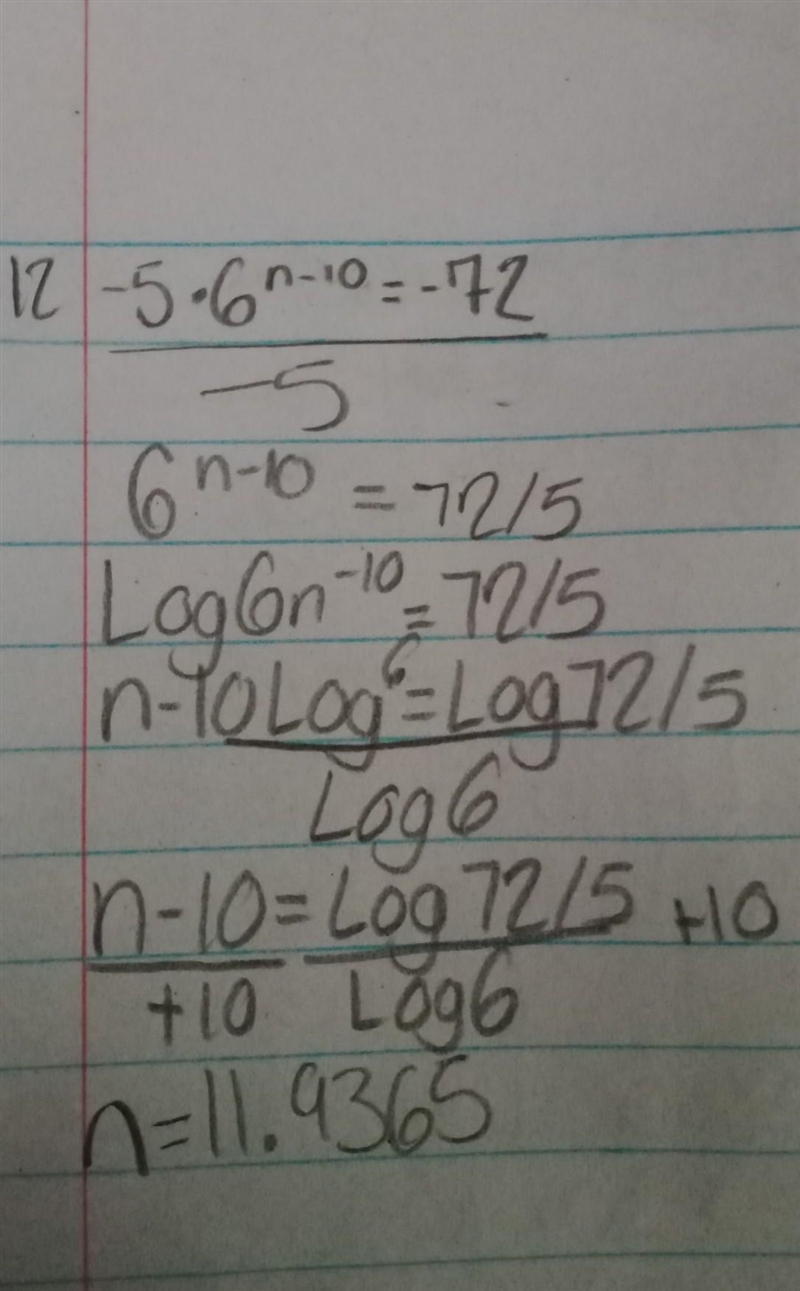 12 -5·6^n-10 = -72
-5
6^n-10 = 72/5
Log6n^-10 = 72/5
n-10Log^6 = Log72/5
Log6
n-10 = Log72/5 +10
+10 Log6
n=11.9365